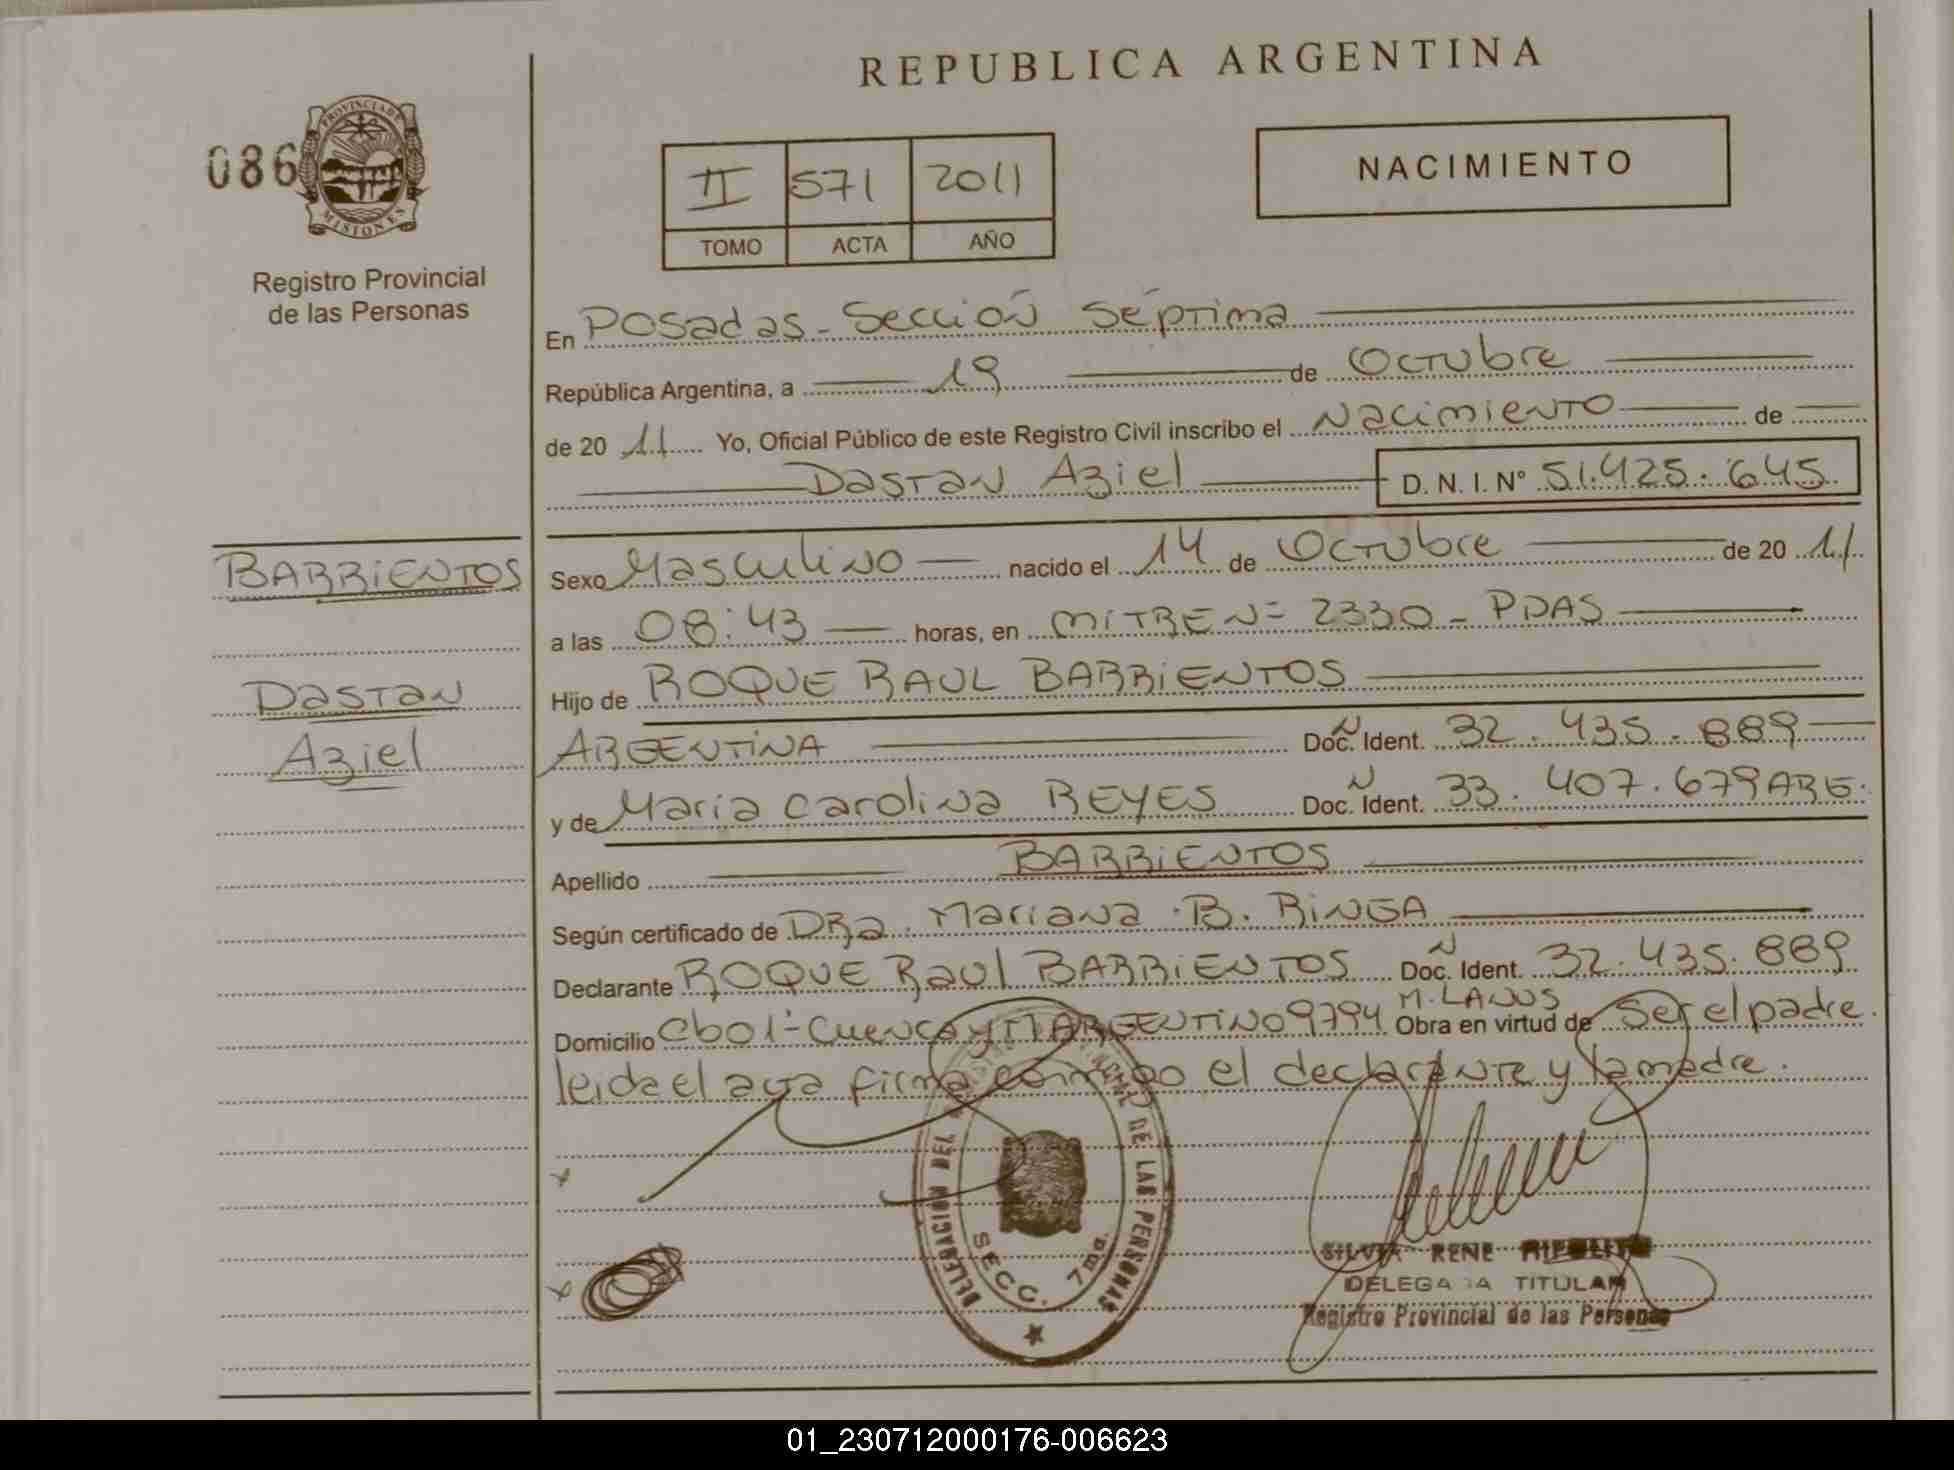 REPUBLICA ARGENTINA
086
PROVINCIA DE MISIONES
Registro Provincial
de las Personas
II 571 2011
TOMO ACTA AÑO
NACIMIENTO
En Posadas - Sección Séptima
República Argentina, a 19 de Octubre
de 20 11 Yo, Oficial Público de este Registro Civil inscribo el Nacimiento de
Dastan Aziel D. N. I. N° 51.425.645
BARRIENTOS
Dastan
Aziel
Sexo Masculino nacido el 14 de Octubre de 20 11
a las 08:43 horas, en MITRE Nº 2330 - PDAS
Hijo de ROQUE RAUL BARRIENTOS
ARGENTINA Doc. Ident. N 32.435.889
y de Maria Carolina REYES Doc. Ident. N 33.407.679 ARG.
Apellido BARRIENTOS
Según certificado de DRa. Mariana B. RINGA
Declarante ROQUE Raul BARRIENTOS Doc. Ident. N 32.435.889
Domicilio Cbo 1º Cuenca y M ARGENTINO 9794 M. LANUS Obra en virtud de Ser el padre.
leida el acta firma conmigo el declarante y la madre.
DELEGACION DEL REGISTRO PROVINCIAL DE LAS PERSONAS
SECC. 7ma.
SILVIA RENE HIPOLITO
DELEGADA TITULAR
Registro Provincial de las Personas
01_230712000176-006623